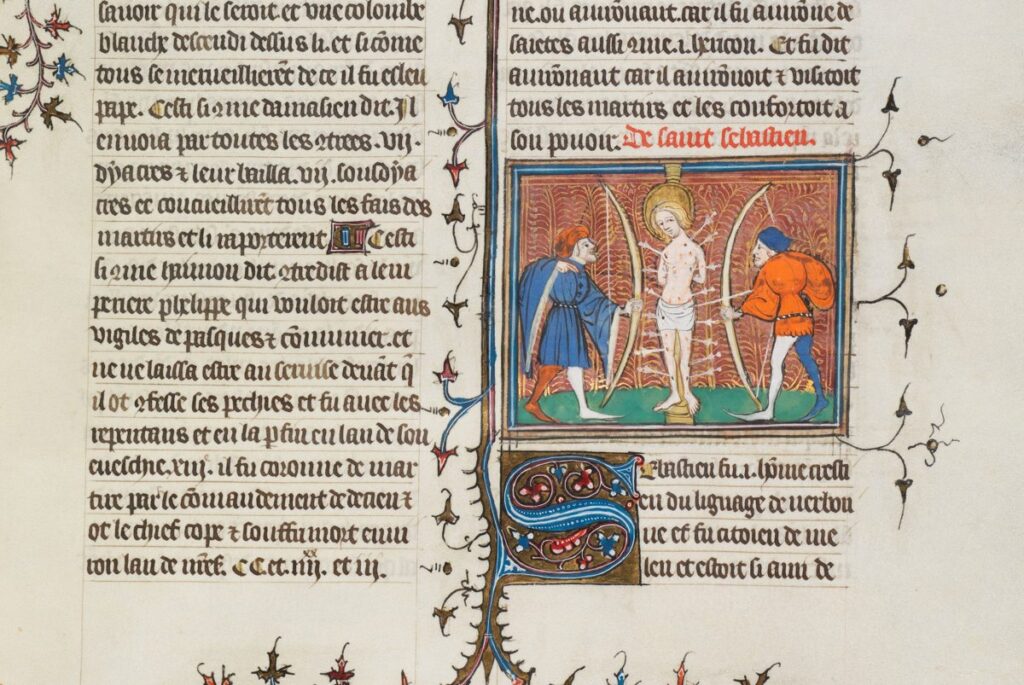 sauoir qui le seroit. et vne colombe
blanche descendi dessus li. et si cõme
tous se merueillierẽt de ce il fu esleu
pape. Cesti si ꝯme damasien dit. Il
enuoia par toutes les ꝯtrees. vij.
dyacres ⁊ leur bailla. vij. sousdya
cres et concueillirẽt tous les fais des
martirs et li importerent. Cesti
si ꝯme haimon dit ꝯtredist a lem
periere phelippe qui vouloit estre aus
vigiles de pasques ⁊ cõmunier. et
ne ne laissa estre au seruise deuãt q̃
il ot ꝯfesse ses pechies et fu auec les
repentans et en la p fin en lan de son
eueschie. xiij. il fu coronne de mar
tire par le cõmandement de decien ⁊
ot le chief cope ⁊ souffri mort enui
ron lan de nr̃es. CC. et. iiij. et iij.
ne. ou auironnant. car il fu auirone de
saietes aussi ꝯme .i. hericon. Et fu dit
auironnant car il auironoit ⁊ visitoit
tous les martirs et les confortoit a
son pouoir. De saint sebastien.
Sebastien fu .i. hõme cresti
en du lignage de nerbon
ne et fu citoien de me
len et estoit si ami de